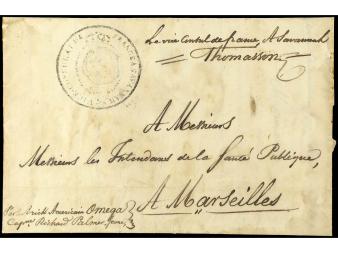 Le vice Consul de france, A Savannah
Thomasson
A Messieurs
Messieurs les Intendans de la Santé Publique,
A Marseilles
Per Brick Américain Omega
Capne. Richard Palmer